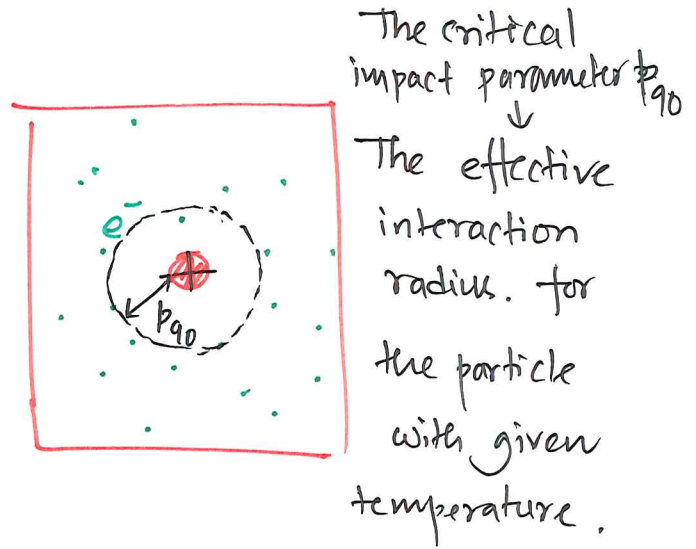 The critical
impact parameter p90
↓
The effective
interaction
radius. for
the particle
with given
temperature.
e-
+
p90